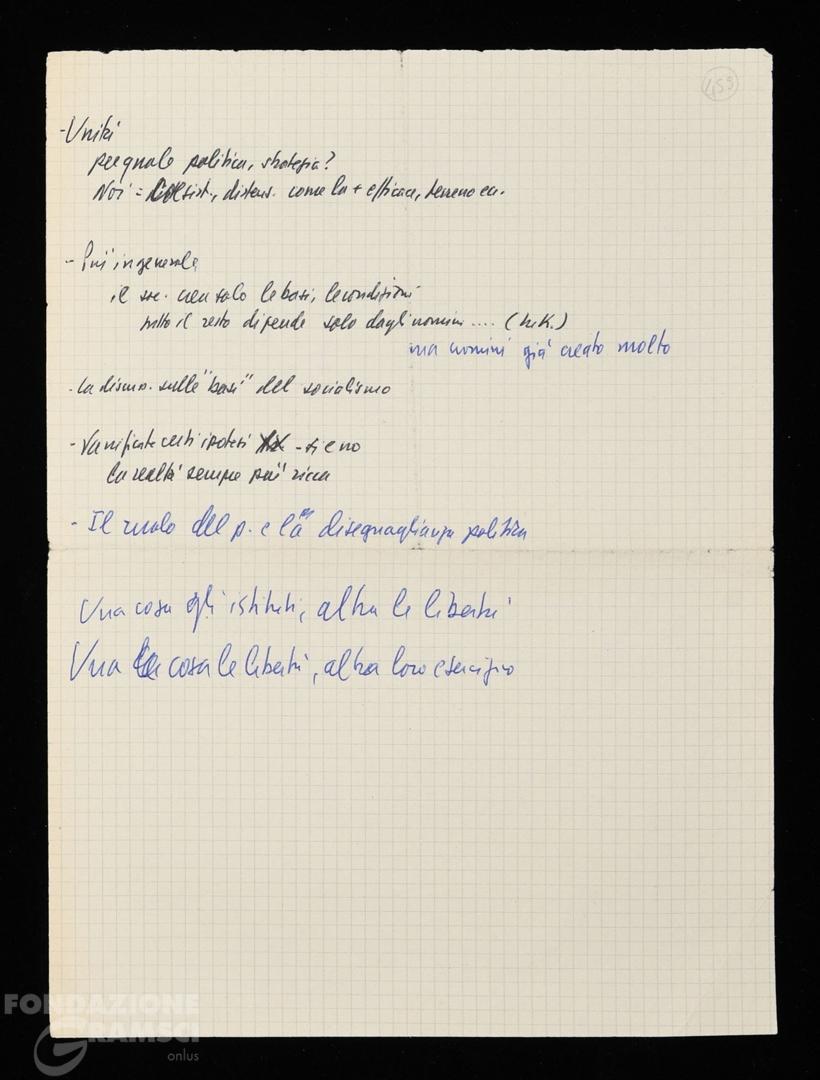 459
- Unità
per quale politica, strategia?
Noi = coesist., distens. come la + efficace, terreno ecc.
- Più in generale
il soc. crea solo le basi, le condizioni
tutto il resto dipende solo dagli uomini .... (h.K.)
ma uomini già creato molto
- La discuss. sulle "basi" del socialismo
- Vanificate certi ipotesi - sì e no
La realtà sempre più ricca
- Il ruolo del p. e la disegnaglianza politica
Una cosa gli istituti, altra le libertà
Una cosa le libertà, altra loro esercizio
FONDAZIONE
GRAMSCI
onlus